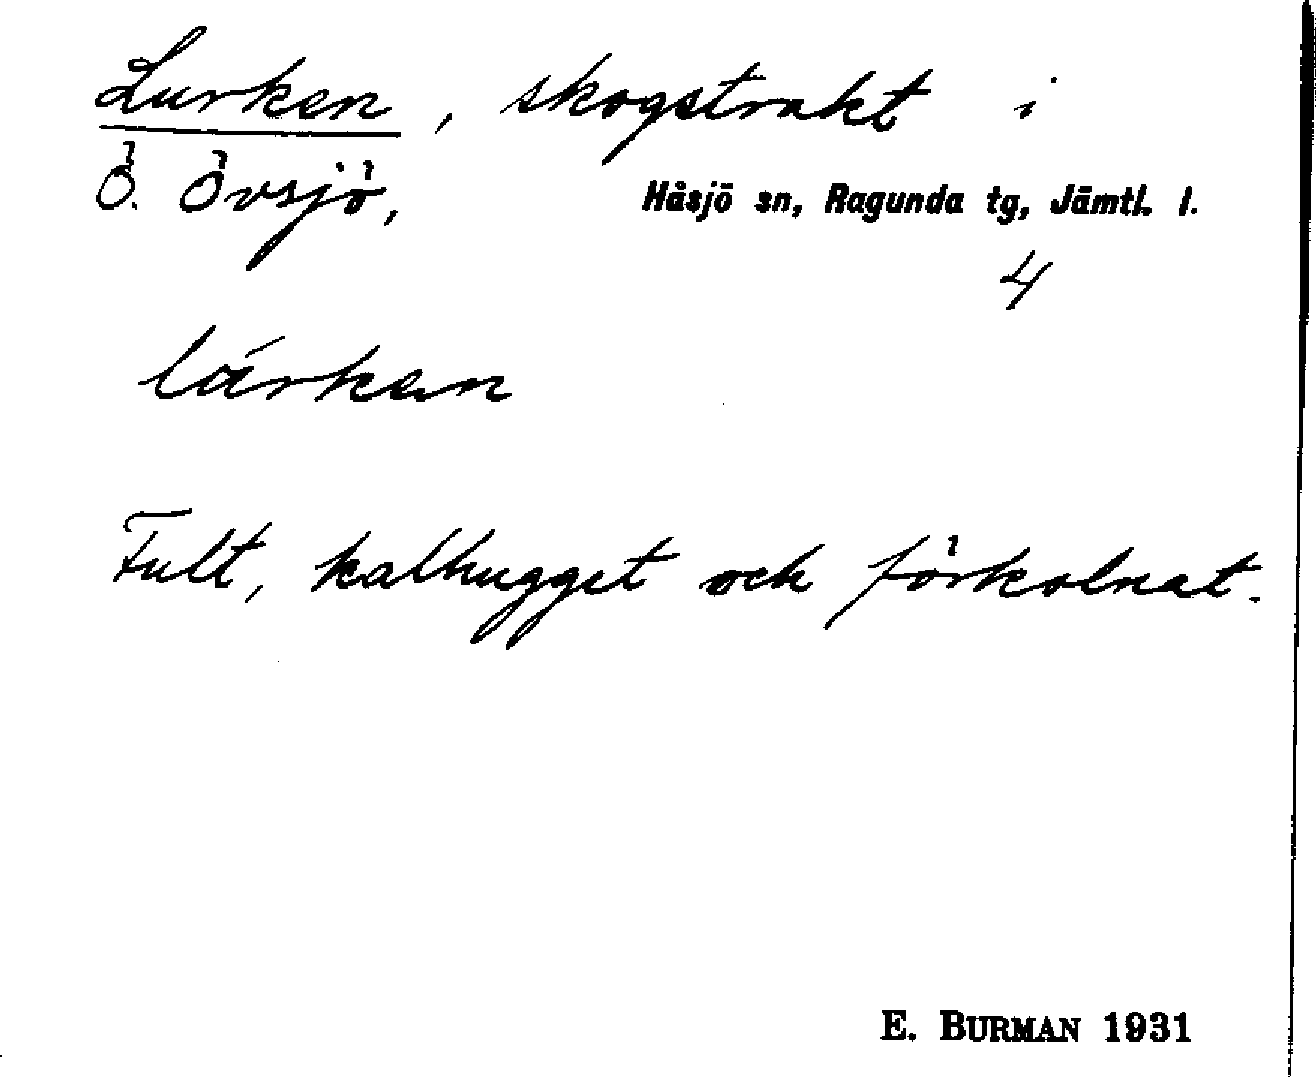 Lurken, skogstrakt i
Ö. Övsjö, Håsjö sn, Ragunda tg, Jämtl. l.
4
Fult, kalhugget och förkolnat.
E. BURMAN 1931